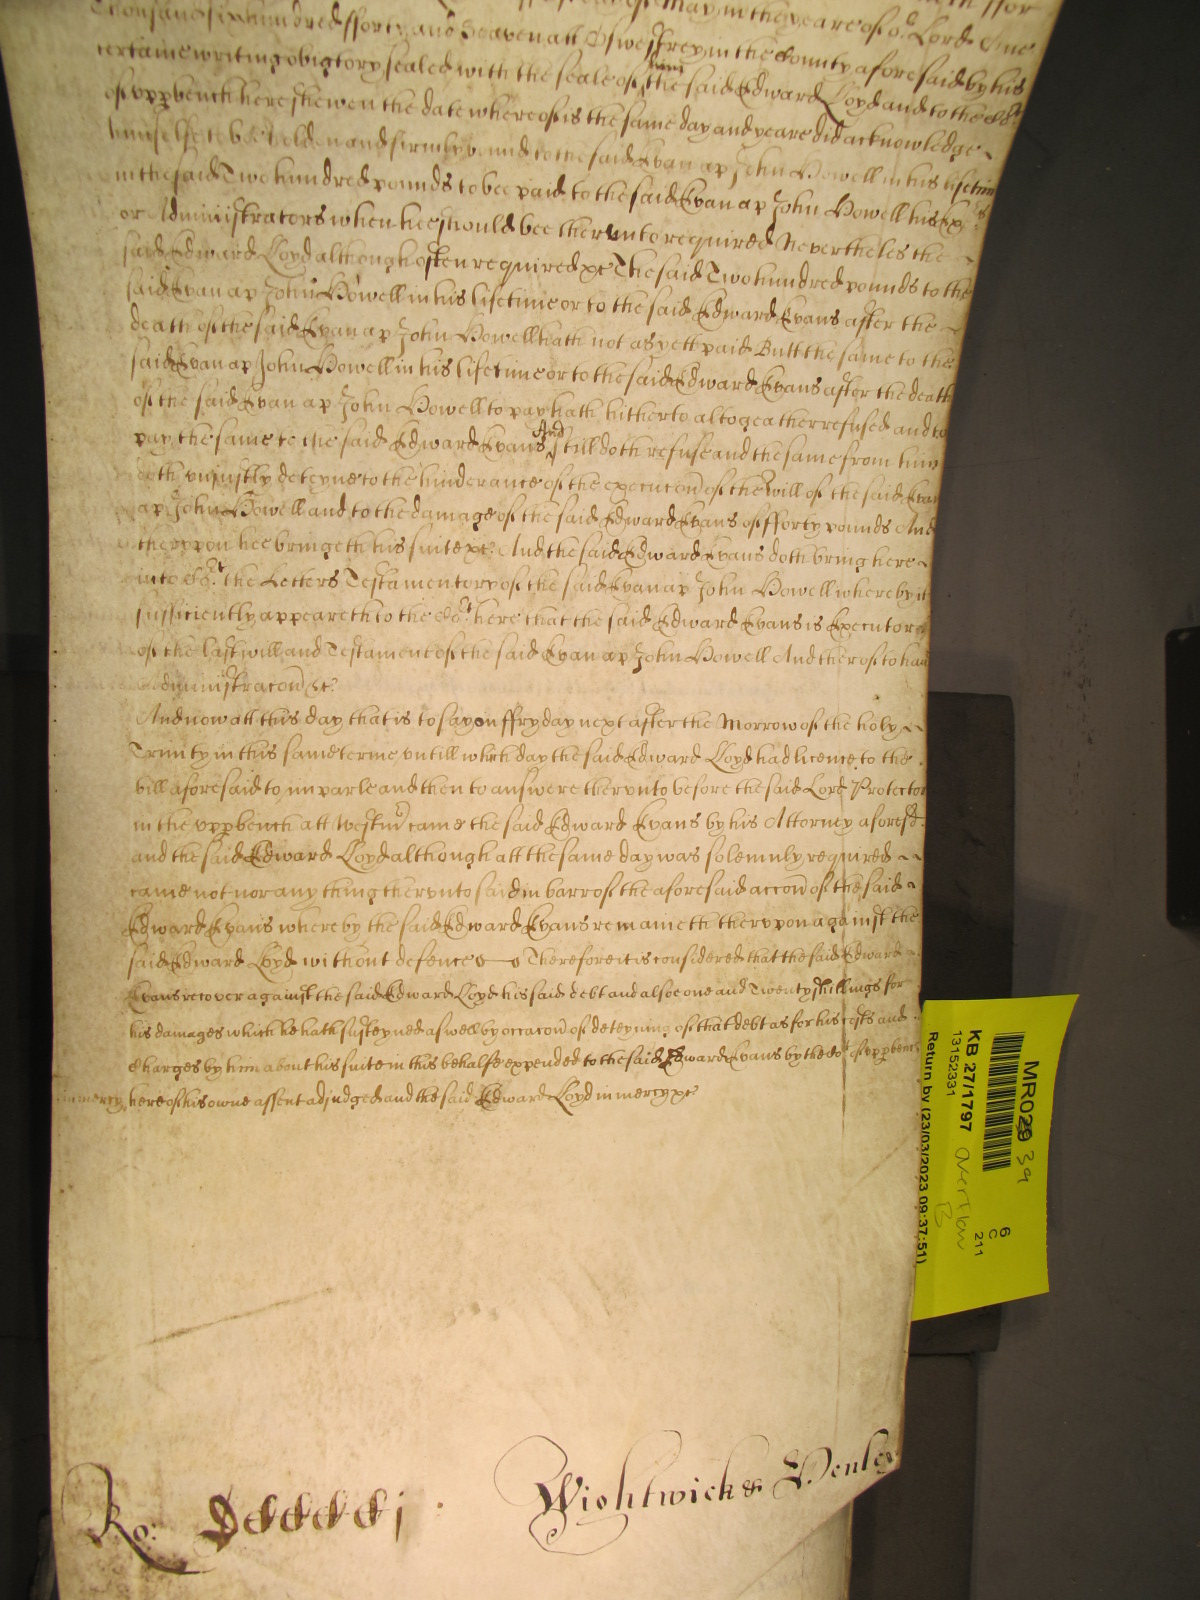 May in the yeare of or. Lord One
thousand six hundred fforty and Seaven att Oswestrey in the County aforesaid by his
certaine writing obligatory sealed with the seale of him the said Edward Lloyd and to the Cort.
of vpp bench here shewen the date whereof is the same day and yeare did acknowledge
himselfe to bee holden and firmly bound to the said Evan ap John Howell in his lifetime
in the said Two hundred pounds to bee paid to the said Evan ap John Howell his Exrs
or Administrators when hee should bee therunto required Nevertheles the
said Edward Lloyd although often required &c The said Two hundred pounds to the
said Evan ap John Howell in his lifetime or to the said Edward Evans after the
death of the said Evan ap John Howell hath not as yett paid Butt the same to the
said Evan ap John Howell in his lifetime or to the said Edward Evans after the death
of the said Evan ap John Howell to pay hath hitherto altogeather refused and to
pay the same to the said Edward Evans And still doth refuse and the same from him
doth vniustly deteyne to the hinderance of the execucon of the Will of the said Evan
ap John Howell and to the damage of the said Edward Evans of fforty pounds And
thervpon hee bringeth his suite &c. And the said Edward Evans doth bring here
into Cort the Letters Testamentory of the said Evan ap John Howell whereby it
sufficiently appeareth to the Cort here that the said Edward Evans is Executor
of the last will and Testament of the said Evan ap John Howell And therof to hau
Administracon &c.
And now att this day that is to say on ffryday next after the Morrow of the holy
Trinity in this same terme vntill which day the said Edward Lloyd had licence to the
bill aforesaid to imparle and then to answere thervnto before the said Lord Protector
in the vpp bench att Westmr came the said Edward Evans by his Attorney aforesd.
and the said Edward Lloyd although att the same day was solemnly required
came not nor any thing thervnto said in barr of the aforesaid accon of the said
Edward Evans whereby the said Edward Evans remaineth thervpon against the
said Edward Lloyd without defence Therefore it is considered that the said Edward
Evans recover against the said Edward Lloyd his said debt and alsoe one and Twenty shillings for
his damages which he hath susteyned aswell by occacon of deteyning of that debt as for his costs and
Charges by him about his suite in this behalfe expended to the said Edward Evans by the Cort of vpp bench
in mercy here of his owne assent adjudged and the said Edward Lloyd in mercy &c
Ro: Wightwick & Henley
MR029 39
KB 27/1797 overflow B
13152331
Return by (23/03/2023 09:37:51)
6
C
211